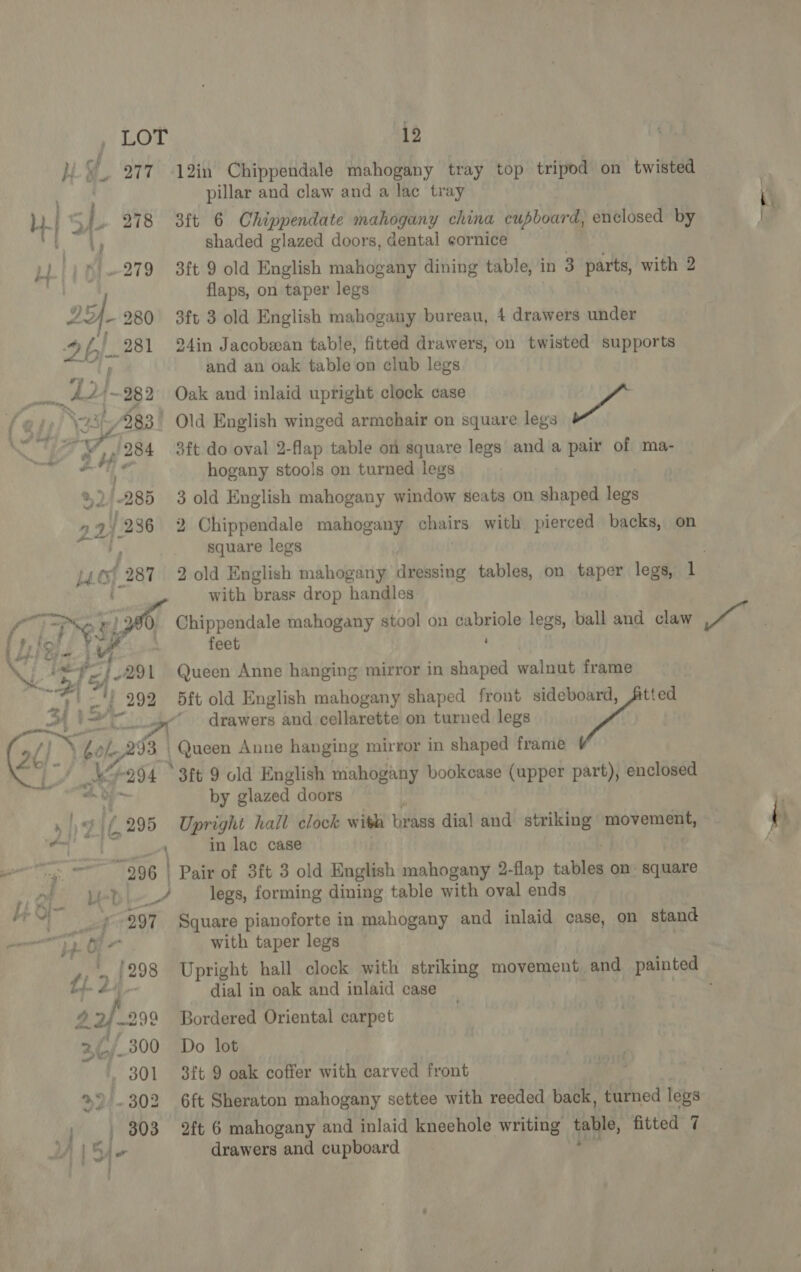 LOT 12
277 12in Chippendale mahogany tray top tripod on twisted
pillar and claw and a lac tray
278 3ft 6 Chippendate mahogany china cupboard, enclosed by
shaded glazed doors, dental cornice
279 3ft 9 old English mahogany dining table, in 3 parts, with 2
flaps, on taper legs
25/- 280 3ft 3 old English mahogany bureau, 4 drawers under
281 24in Jacobæan table, fitted drawers, on twisted supports
and an oak table on club legs
282 Oak and inlaid upright clock case
283 Old English winged armchair on square legs
284 3ft do oval 2-flap table on square legs and a pair of ma-
hogany stools on turned legs
285 3 old English mahogany window seats on shaped legs
286 2 Chippendale mahogany chairs with pierced backs, on
square legs
287 2 old English mahogany dressing tables, on taper legs, 1
with brass drop handles
290 Chippendale mahogany stool on cabriole legs, ball and claw
feet
291 Queen Anne hanging mirror in shaped walnut frame
292 5ft old English mahogany shaped front sideboard, fitted
drawers and cellarette on turned legs
293 Queen Anne hanging mirror in shaped frame
294 3ft 9 old English mahogany bookcase (upper part), enclosed
by glazed doors
295 Upright hall clock with brass dial and striking movement,
in lac case
296 Pair of 3ft 3 old English mahogany 2-flap tables on square
legs, forming dining table with oval ends
297 Square pianoforte in mahogany and inlaid case, on stand
with taper legs
298 Upright hall clock with striking movement and painted
dial in oak and inlaid case
299 Bordered Oriental carpet
300 Do lot
301 3ft 9 oak coffer with carved front
302 6ft Sheraton mahogany settee with reeded back, turned legs
303 2ft 6 mahogany and inlaid kneehole writing table, fitted 7
drawers and cupboard